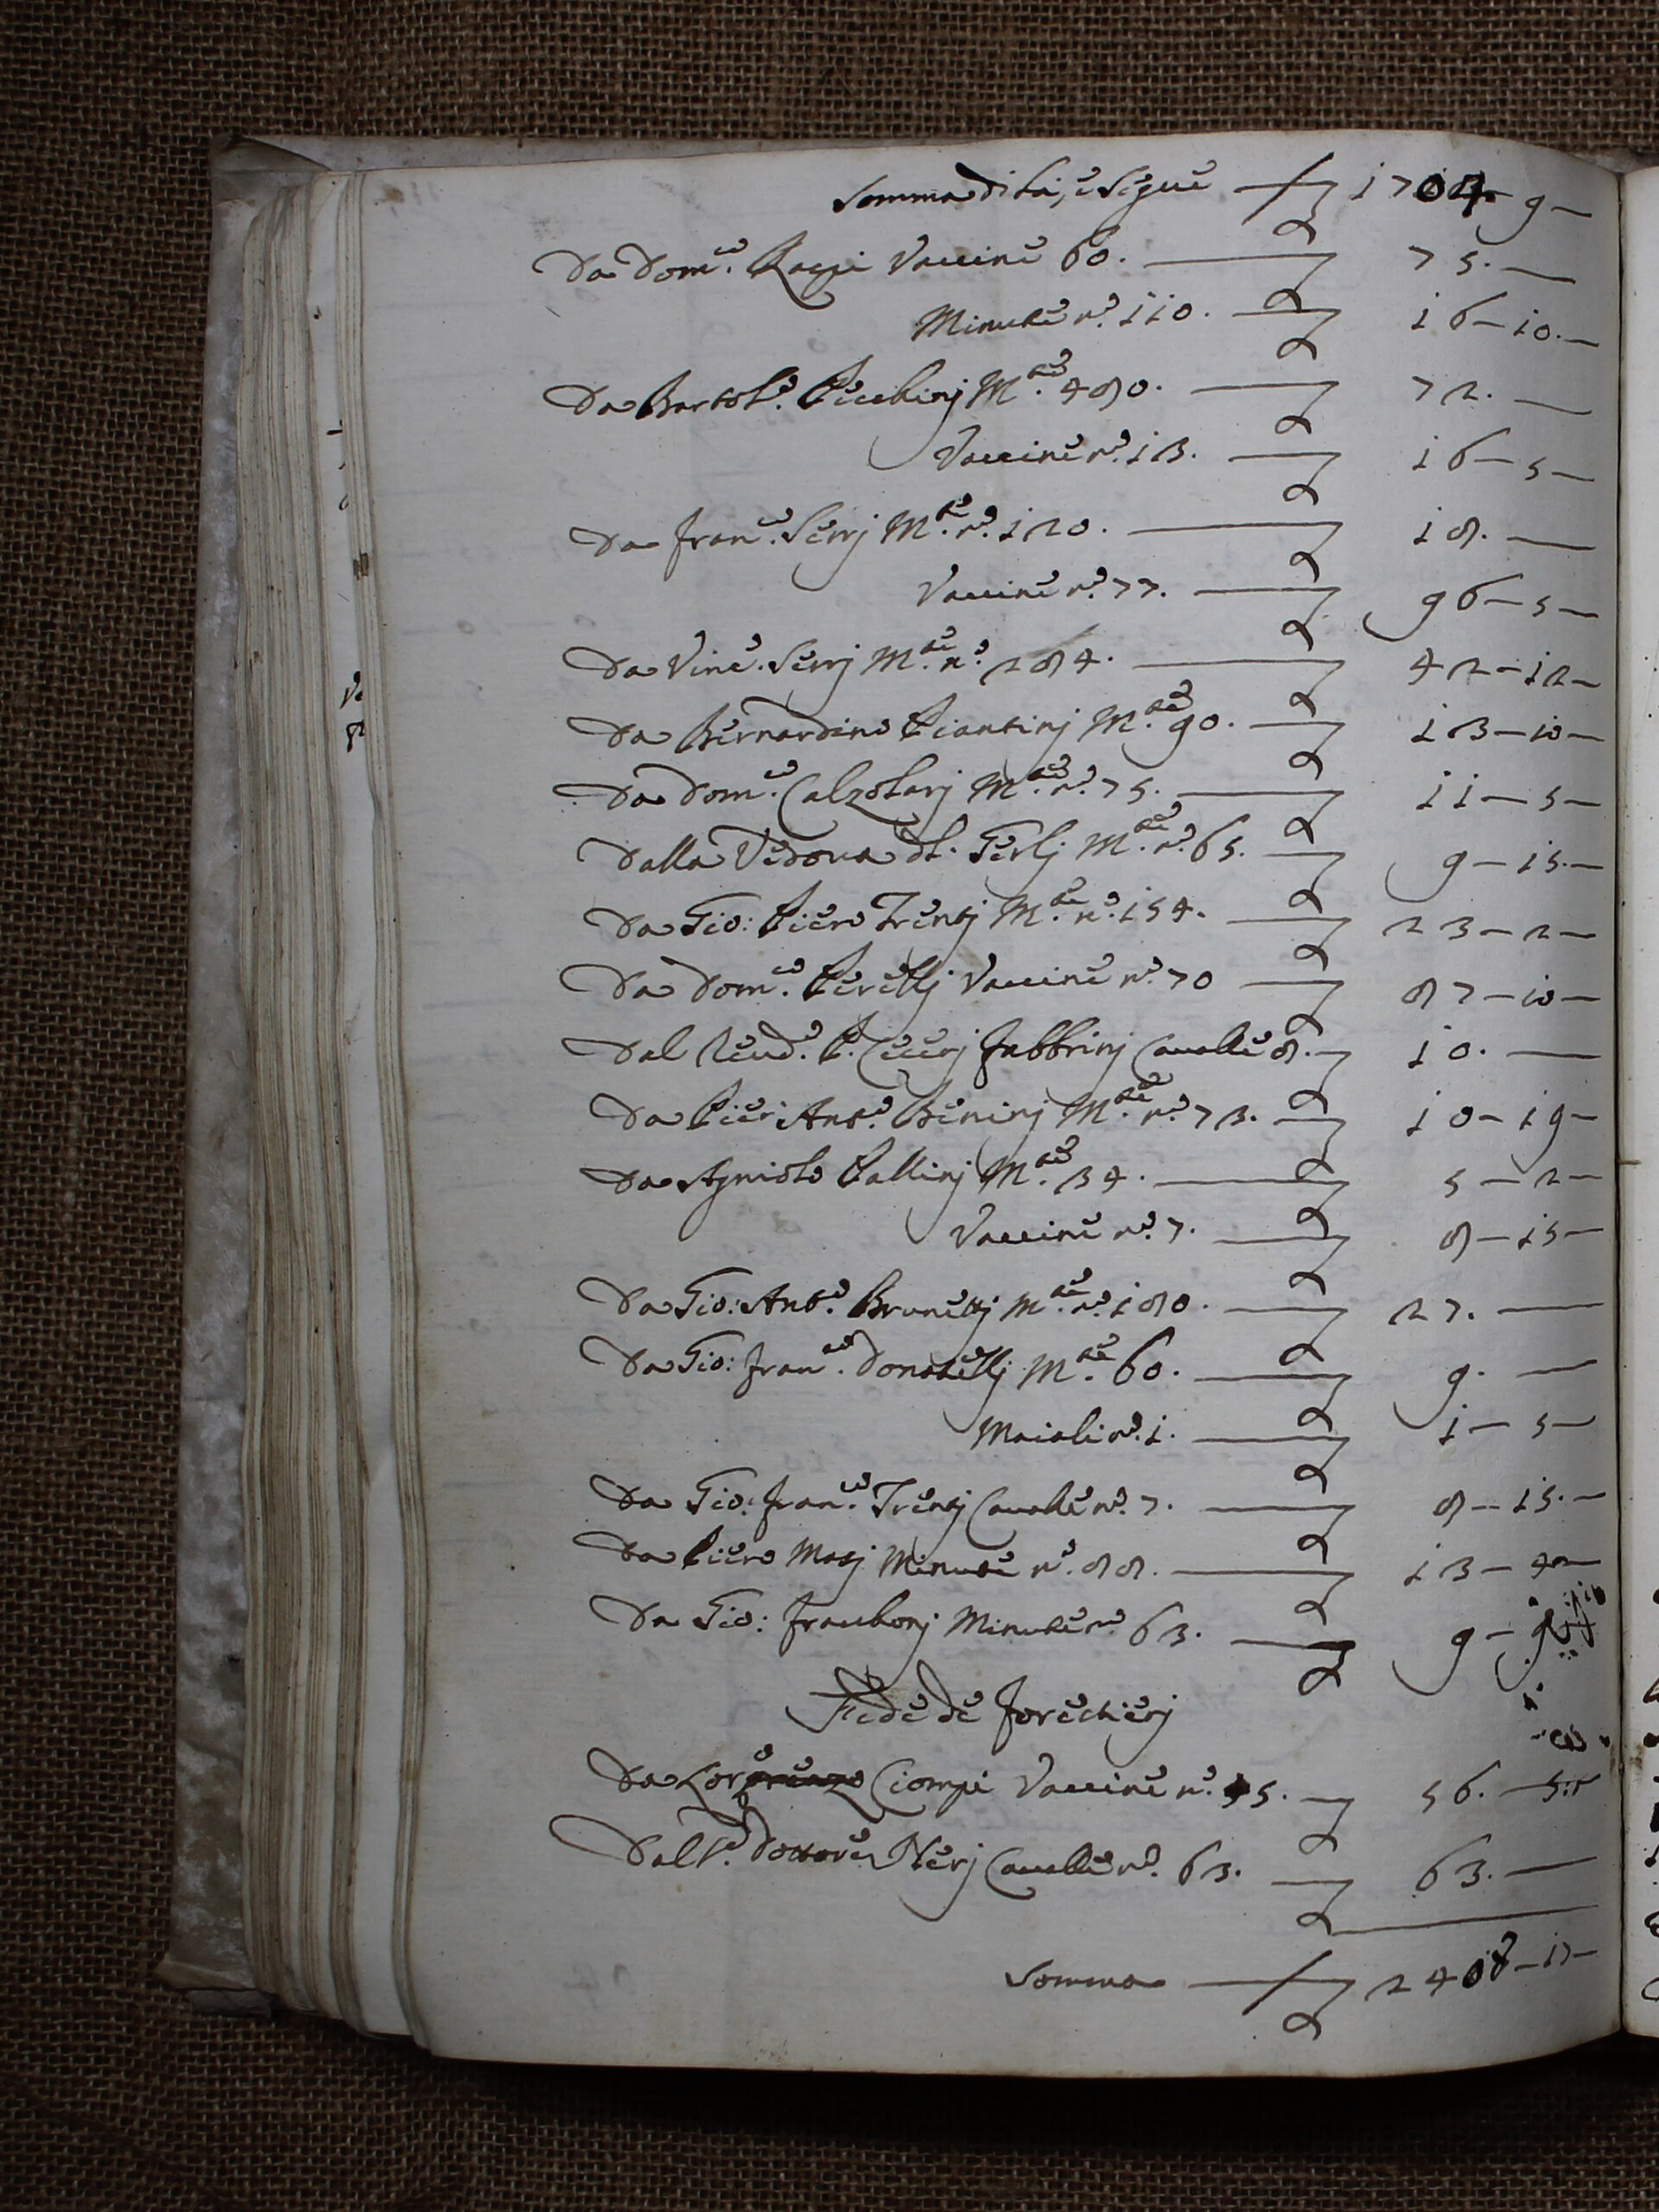 Somma di là, e segue — 1704 - 9 -
Da Dom.co Rappi Vaccine 60. — 75. —
Minute n.o 110. — 16 - 10. —
Da Bartol.o Picchinj M.te 480. — 72. —
Vaccine n.o 13. — 16 - 5 —
Da Fran.co Serrj M.te n.o 120. — 18. —
Vaccine n.o 77. — 96 - 5 —
Da Vinc.o Serrj M.te n.o 284. — 42 - 12 —
Da Bernardino Piantinj M.te 90. — 13 - 10 —
Da Dom.co Calzolarj M.te n.o 75. — 11 - 5 —
Dalla Vedova di Gerlj M.te n.o 65. — 9 - 15. —
Da Gio: Piero Trentj M.te n.o 154. — 23 - 2 —
Da Dom.co Perellj Vaccine n.o 70 — 87 - 10 —
Dal Reud.o P. Ceccrj Fabbrinj Cavalle 8. — 10. —
Da Pier Ant.o Beninj M.te n.o 73. — 10 - 19 —
Da Agniolo Pallinj M.te 34. — 5 - 2 —
Vaccine n.o 7. — 8 - 15 —
Da Gio: Ant.o Brunettj M.te n.o 180. — 27. —
Da Gio: Fran.co Donatellj M.te 60. — 9. —
Maiali n.o 1. — 1 - 5 —
Da Gio: Fran.co Trentj Cavalle n.o 7. — 8 - 15. —
Da Piero Masj Minute n.o 88. — 13 - 4 —
Da Gio: Franchonj Minute n.o 63. — 9 - 9
Fede de Forestierj
Da Lor.o Ciompi Vaccine n.o 45. — 56. - 5
Dal S.r Dottore Nerj Cavalle n.o 63. — 63. —
Somma — 2408 - 17 —